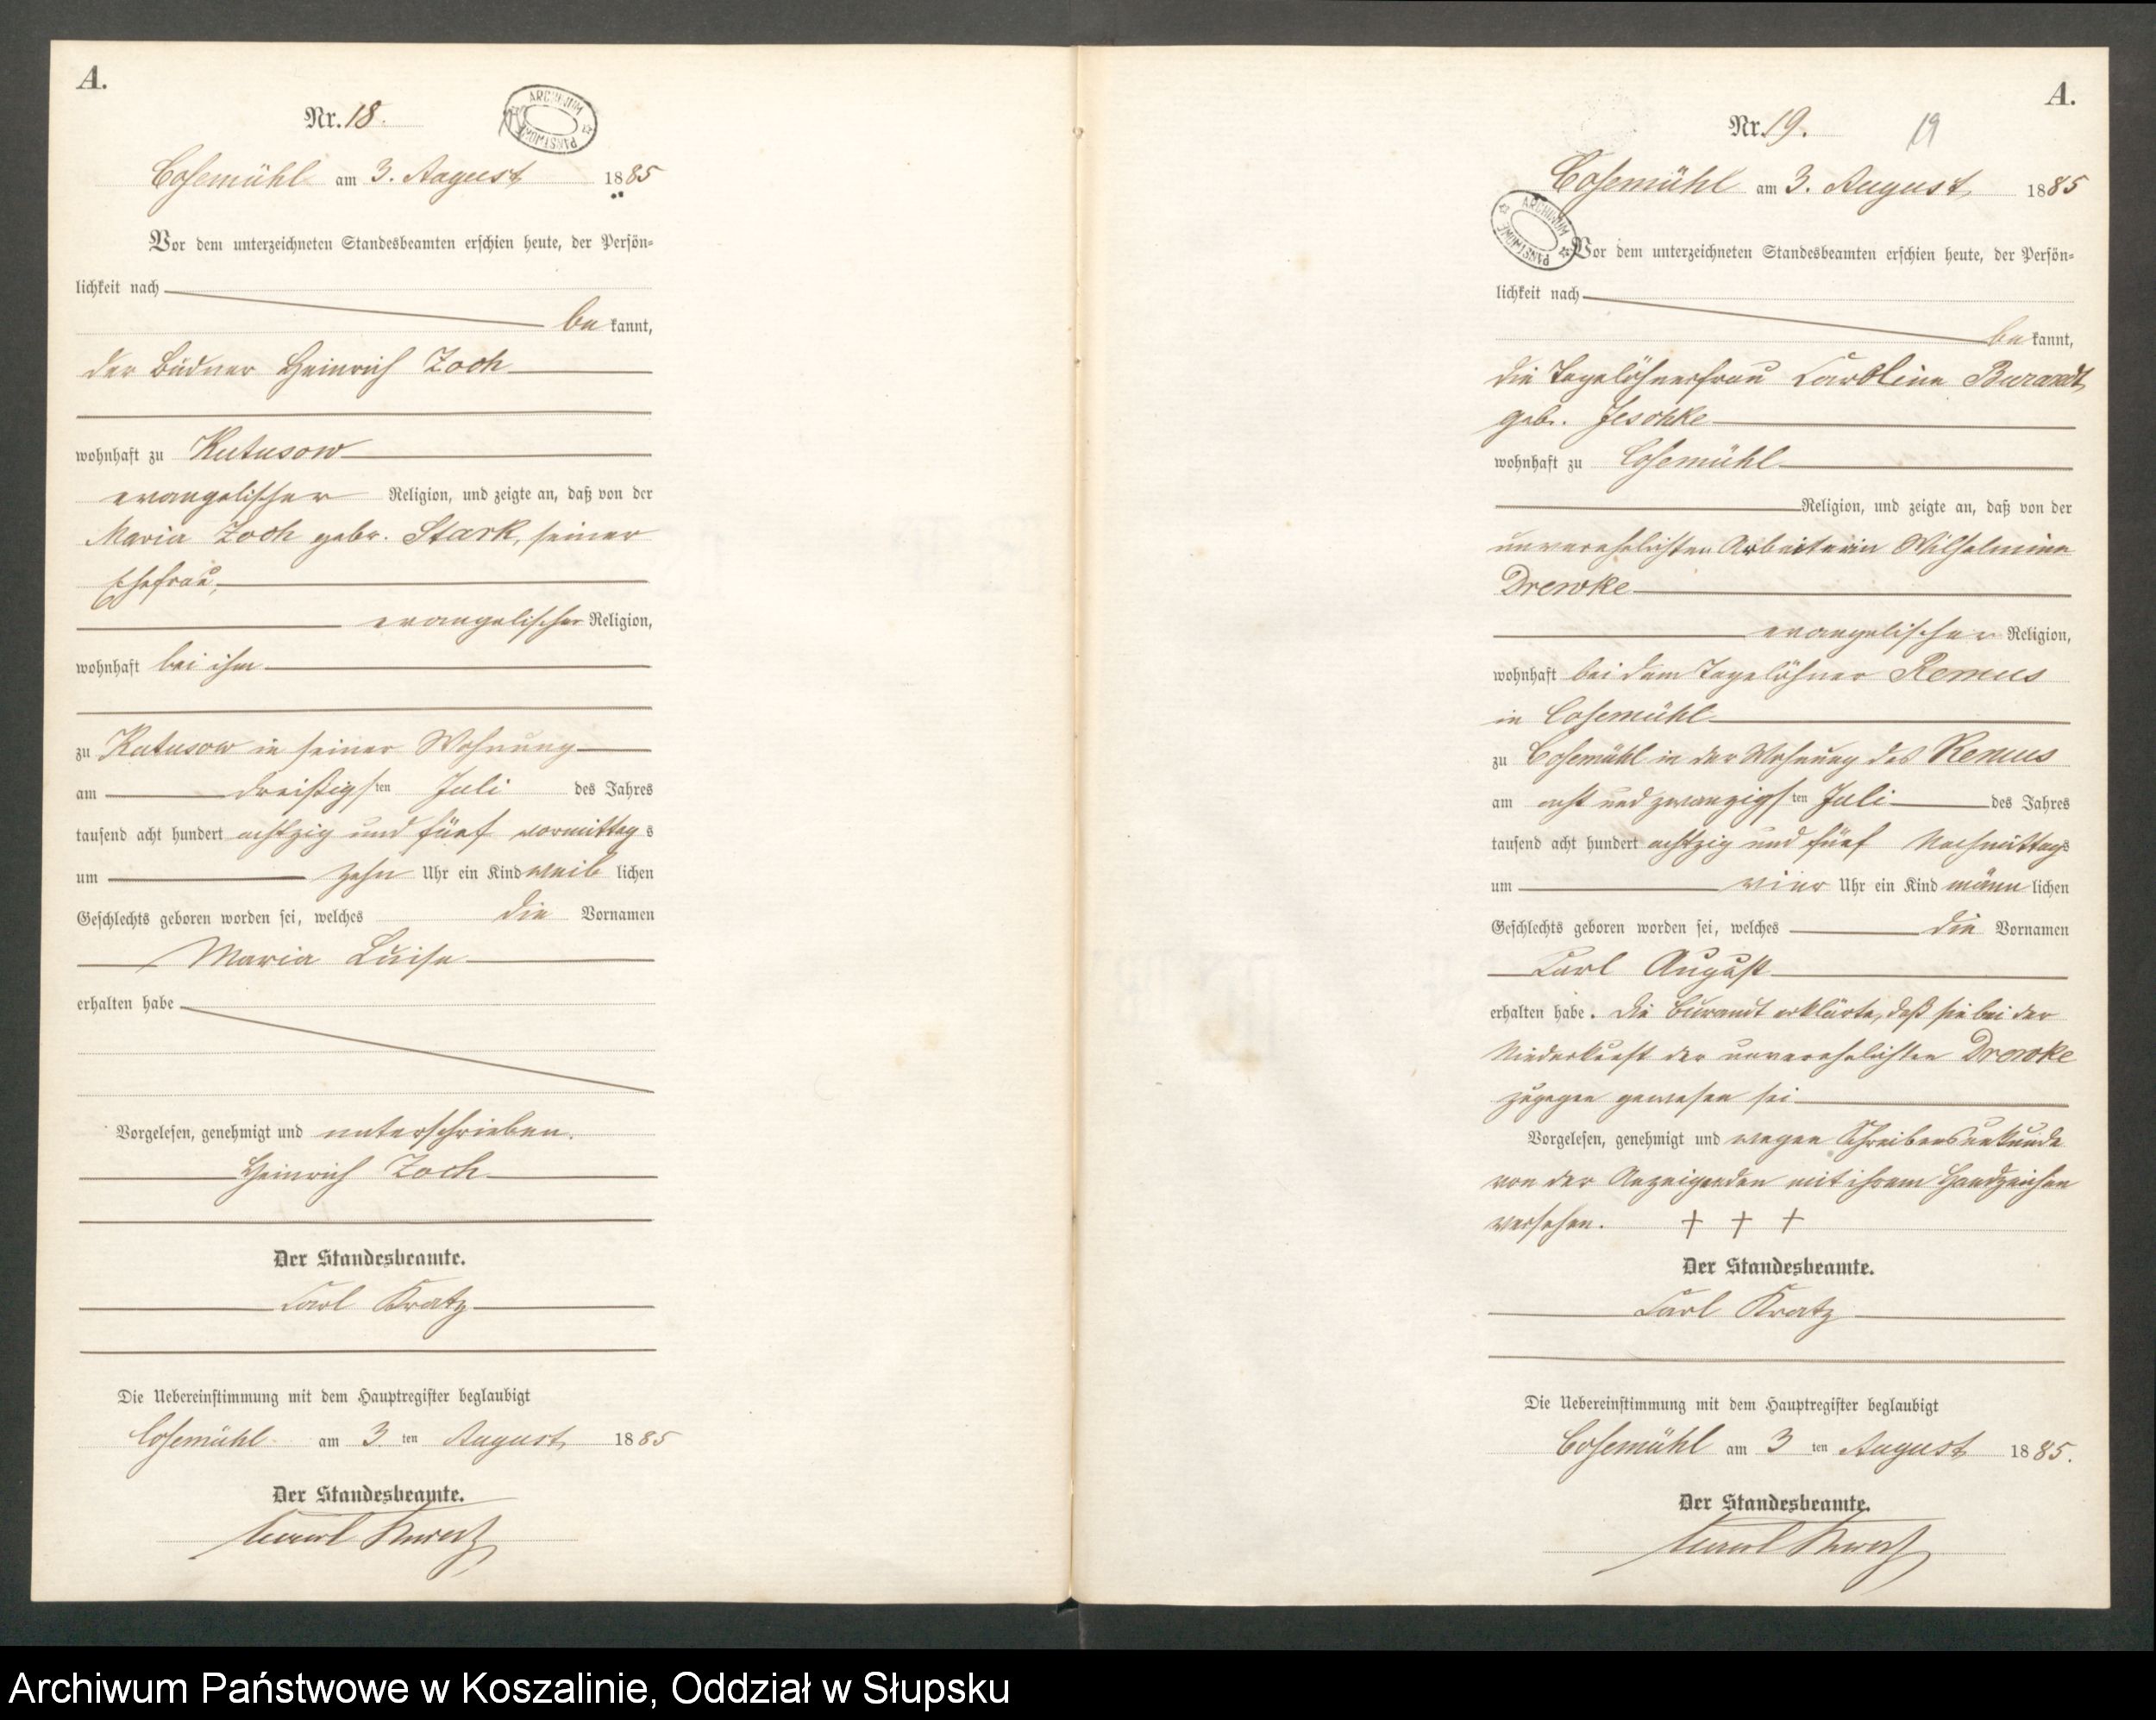 A.
Nr. 18.
ARCHIWUM PAŃSTWOWE
Cosemühl am 3. August 1885
Vor dem unterzeichneten Standesbeamten erschien heute, der Persön=
lichkeit nach
be kannt,
der Büdner Heinrich Zoch
wohnhaft zu Kutusow
evangelischer Religion, und zeigte an, daß von der
Maria Zoch gebr. Stark, seiner
Ehefrau,
evangelischer Religion,
wohnhaft bei ihm
zu Kutusow in seiner Wohnung
am dreißigsten Juli des Jahres
tausend acht hundert achtzig und fünf vormittags
um zehn Uhr ein Kind weiblichen
Geschlechts geboren worden sei, welches die Vornamen
Maria Luise
erhalten habe
Vorgelesen, genehmigt und unterschrieben.
Heinrich Zoch
Der Standesbeamte.
Carl Kratz
Die Uebereinstimmung mit dem Hauptregister beglaubigt
Cosemühl am 3 ten August 1885
Der Standesbeamte.
Carl Kratz
A.
Nr. 19.
19
Cosemühl am 3. August 1885
ARCHIWUM PAŃSTWOWE
Vor dem unterzeichneten Standesbeamten erschien heute, der Persön=
lichkeit nach
be kannt,
die Tagelöhnerfrau Caroline Burandt
geb. Jeschke
wohnhaft zu Cosemühl
Religion, und zeigte an, daß von der
unverehelichten Arbeiterin Wilhelmine
Drewke
evangelischer Religion,
wohnhaft bei dem Tagelöhner Remus
in Cosemühl
zu Cosemühl in der Wohnung des Remus
am acht und zwanzigsten Juli des Jahres
tausend acht hundert achtzig und fünf Nachmittags
um vier Uhr ein Kind männlichen
Geschlechts geboren worden sei, welches die Vornamen
Carl August
erhalten habe. Die Burandt erklärte, daß sie bei der
Niederkunft der unverehelichten Drewke
zugegen gewesen sei
Vorgelesen, genehmigt und wegen Schreibensunkunde
von der Anzeigenden mit ihrem Handzeichen
versehen. + + +
Der Standesbeamte.
Carl Kratz
Die Uebereinstimmung mit dem Hauptregister beglaubigt
Cosemühl am 3 ten August 1885.
Der Standesbeamte.
Carl Kratz
Archiwum Państwowe w Koszalinie, Oddział w Słupsku